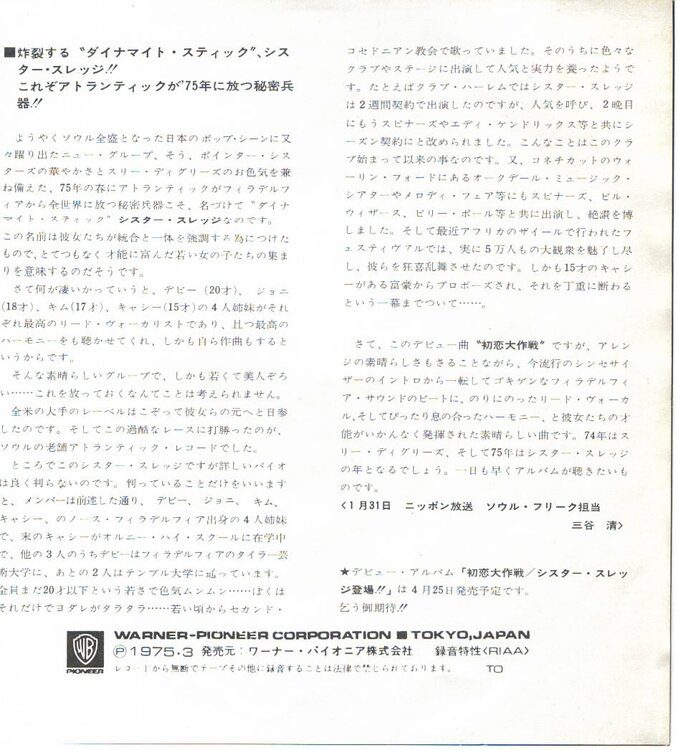 ■炸裂する“ダイナマイト・スティック”、シス
ター・スレッジ!!
これぞアトランティックが'75年に放つ秘密兵
器!!
ようやくソウル全盛となった日本のポップ・シーンに又
々躍り出たニュー・グループ、そう、ポインター・シス
ターズの華やかさとスリー・ディグリーズのお色気を兼
ね備えた、75年の春にアトランティックがフィラデルフ
ィアから全世界に放つ秘密兵器こそ、名づけて“ダイナ
マイト・スティック”シスター・スレッジなのです。
この名前は彼女たちが統合と一体を強調する為につけた
もので、とてつもなく才能に富んだ若い女の子たちの集ま
りを意味するのだそうです。
さて何が凄いかっていうと、デビー(20才)、ジョニ
(18才)、キム(17才)、キャシー(15才)の4人姉妹がそれ
ぞれ最高のリード・ヴォーカリストであり、且つ最高の
ハーモニーをも聴かせてくれ、しかも自ら作曲もすると
いうからです。
そんな素晴らしいグループで、しかも若くて美人ぞろ
い……これを放っておくなんてことは考えられません。
全米の大手のレーベルはこぞって彼女らの元へと日参
したのです。そしてこの過酷なレースに打勝ったのが、
ソウルの老舗アトランティック・レコードでした。
ところでこのシスター・スレッジですが詳しいバイオ
は良く判らないのです。判っていることだけをいいます
と、メンバーは前述した通り、デビー、ジョニ、キム、
キャシー、のノース・フィラデルフィア出身の4人姉妹
で、末のキャシーがオルニー・ハイ・スクールに在学中
で、他の3人のうちデビーはフィラデルフィアのタイラー芸
術大学に、あとの2人はテンプル大学に通っています。
全員まだ20才以下という若さで色気ムンムン……ぼくは
それだけでヨダレがタラタラ……若い頃からセカンド・
コセドニアン教会で歌っていました。そのうちに色々な
クラブやステージに出演して人気と実力を養ったようで
す。たとえばクラブ・ハーレムではシスター・スレッジ
は2週間契約で出演したのですが、人気を呼び、2晩目
にもうスピナーズやエディ・ケンドリックス等と共にシ
ーズン契約にと改められました。こんなことはこのクラ
ブ始まって以来の事なのです。又、コネチカットのウォ
ーリン・フォードにあるオークデール・ミュージック・
シアターやメロディ・フェア等にもスピナーズ、ビル・
ウィザース、ビリー・ポール等と共に出演し、絶讃を博
しました。そして最近アフリカのザイールで行われたフ
ェスティヴァルでは、実に5万人もの大観衆を魅了し尽
し、彼らを狂喜乱舞させたのです。しかも15才のキャシ
ーがある富豪からプロポーズされ、それを丁重に断わる
という一幕までついて……。
さて、このデビュー曲“初恋大作戦”ですが、アレン
ジの素晴らしさもさることながら、今流行のシンセサイ
ザーのイントロから一転してゴキゲンなフィラデルフィ
ア・サウンドのビートに、のりにのったリード・ヴォーカ
ル、そしてぴったり息の合ったハーモニー、と彼女たちの才
能がいかんなく発揮された素晴らしい曲です。74年はス
リー・ディグリーズ、そして75年はシスター・スレッジ
の年となるでしょう。一日も早くアルバムが聴きたいも
のです。
<1月31日 ニッポン放送 ソウル・フリーク担当
三谷 清>
★デビュー・アルバム「初恋大作戦/シスター・スレッ
ジ登場!!」は4月25日発売予定です。
乞う御期待!!
WB
PIONEER
WARNER-PIONEER CORPORATION ■ TOKYO, JAPAN
Ⓟ1975・3 発売元：ワーナー・パイオニア株式会社 録音特性<RIAA>
レコードから無断でテープその他に録音することは法律で禁じられております。 TO